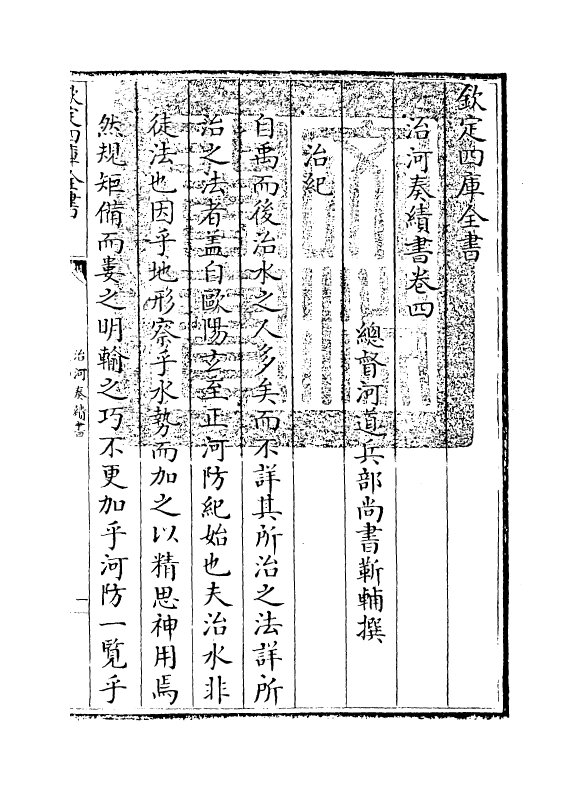 欽定四庫全書
治河奏績書卷四
總督河道兵部尚書靳輔撰
治紀
自禹而後治水之人多矣而不詳其所治之法詳所
治之法者盖自歐陽玄至正河防紀始也夫治水非
徒法也因乎地形察乎水勢而加之以精思神用焉
然規矩備而婁之明輸之巧不更加乎河防一覽乎
欽定四庫全書
治河奏績書
一